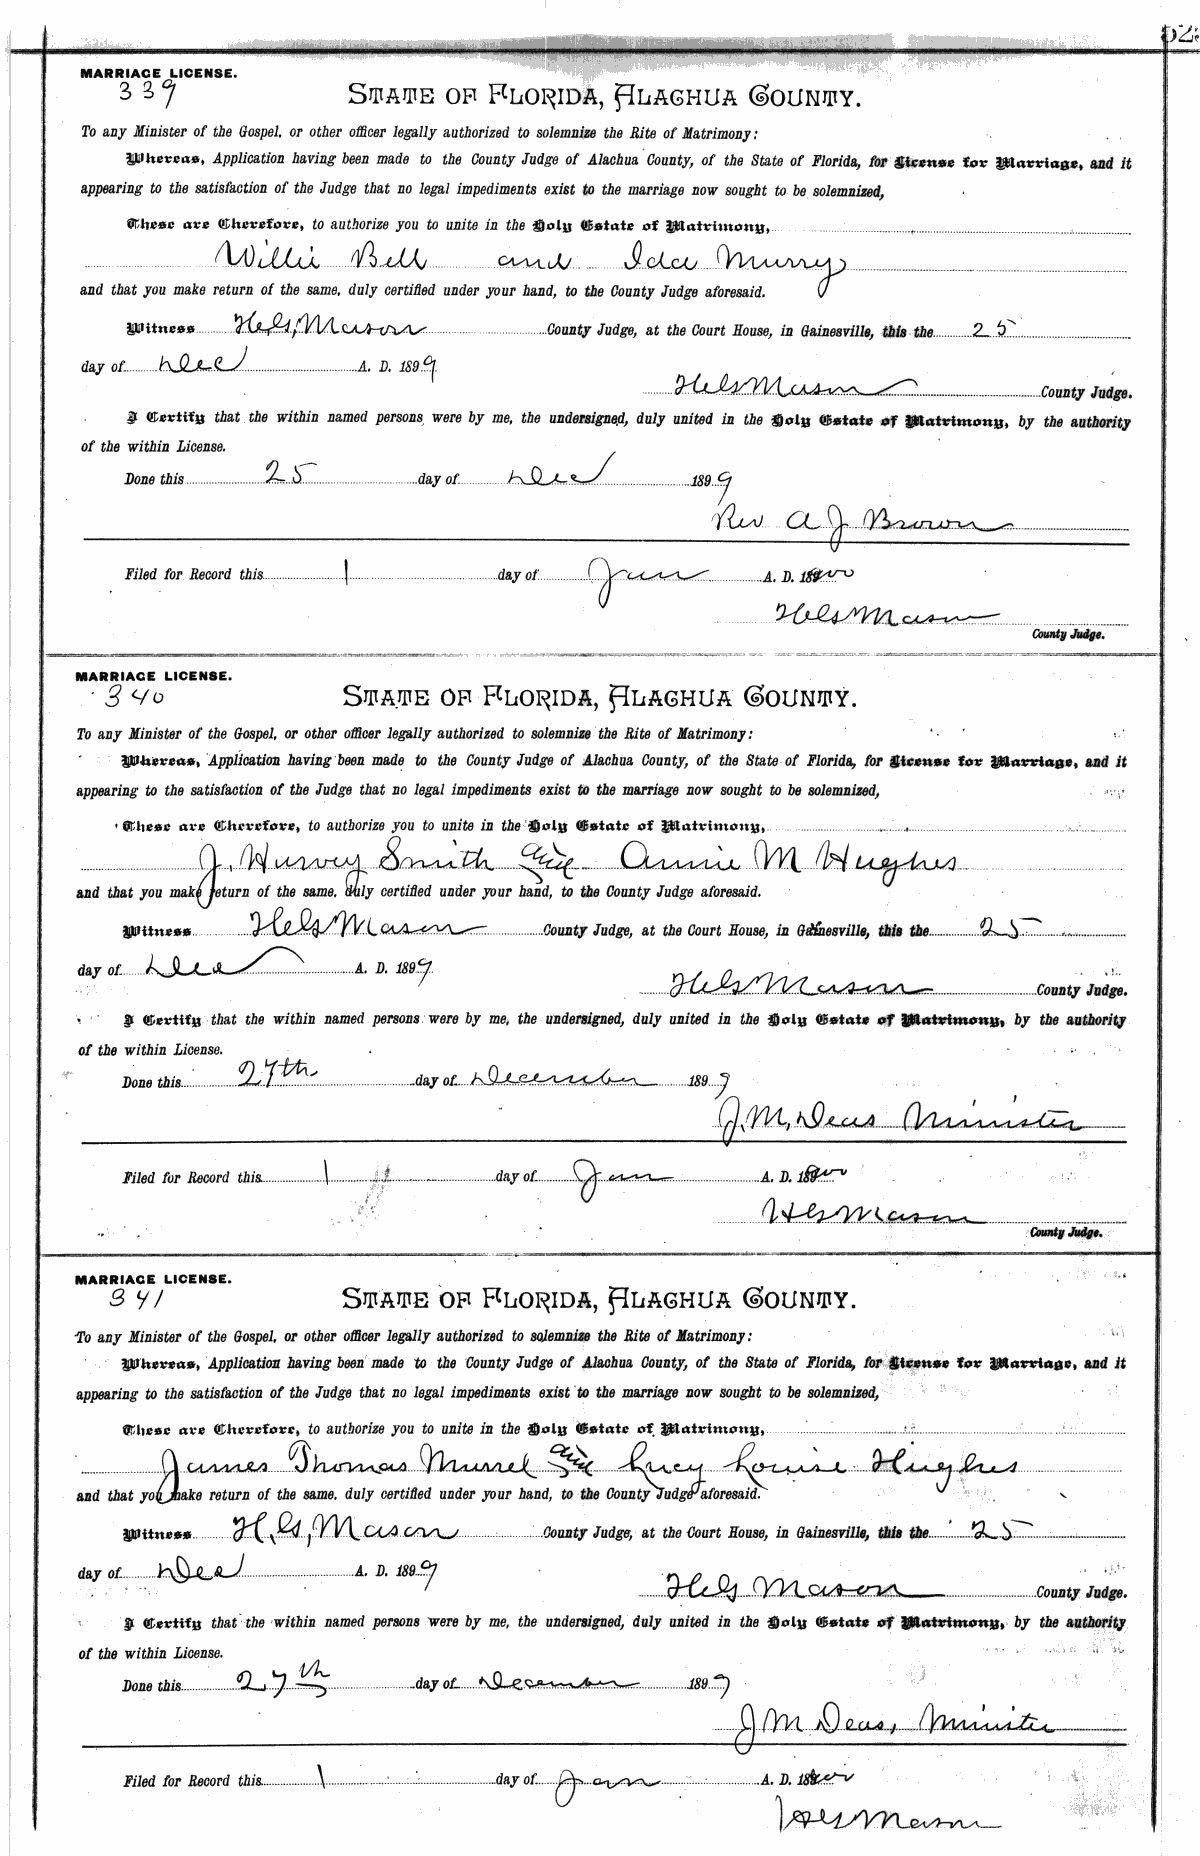 MARRIAGE LICENSE.
339
STATE OF FLORIDA, ALACHUA COUNTY.
To any Minister of the Gospel, or other officer legally authorized to solemnize the Rite of Matrimony:
Whereas, Application having been made to the County Judge of Alachua County, of the State of Florida, for License for Marriage, and it
appearing to the satisfaction of the Judge that no legal impediments exist to the marriage now sought to be solemnized,
These are Therefore, to authorize you to unite in the Holy Estate of Matrimony,
Willie Bell and Ida Murry
and that you make return of the same, duly certified under your hand, to the County Judge aforesaid.
Witness H.G. Mason County Judge, at the Court House, in Gainesville, this the 25
day of Dec A. D. 1899
H G Mason County Judge.
I Certify that the within named persons were by me, the undersigned, duly united in the Holy Estate of Matrimony, by the authority
of the within License.
Done this 25 day of Dec 1899
Rev A J Brown
Filed for Record this 1 day of Jan A. D. 1900
H G Mason
County Judge.
MARRIAGE LICENSE.
340
STATE OF FLORIDA, ALACHUA COUNTY.
To any Minister of the Gospel, or other officer legally authorized to solemnize the Rite of Matrimony:
Whereas, Application having been made to the County Judge of Alachua County, of the State of Florida, for License for Marriage, and it
appearing to the satisfaction of the Judge that no legal impediments exist to the marriage now sought to be solemnized,
These are Therefore, to authorize you to unite in the Holy Estate of Matrimony,
J. Harvey Smith and Annie M Hughes
and that you make return of the same, duly certified under your hand, to the County Judge aforesaid.
Witness H G Mason County Judge, at the Court House, in Gainesville, this the 25
day of Dec A. D. 1899
H G Mason County Judge.
I Certify that the within named persons were by me, the undersigned, duly united in the Holy Estate of Matrimony, by the authority
of the within License.
Done this 27th day of December 1899
J. M. Deas Minister
Filed for Record this 1 day of Jan A. D. 1900
H G Mason
County Judge.
MARRIAGE LICENSE.
341
STATE OF FLORIDA, ALACHUA COUNTY.
To any Minister of the Gospel, or other officer legally authorized to solemnize the Rite of Matrimony:
Whereas, Application having been made to the County Judge of Alachua County, of the State of Florida, for License for Marriage, and it
appearing to the satisfaction of the Judge that no legal impediments exist to the marriage now sought to be solemnized,
These are Therefore, to authorize you to unite in the Holy Estate of Matrimony,
James Thomas Murrel and Lucy Louise Hughes
and that you make return of the same, duly certified under your hand, to the County Judge aforesaid.
Witness H. G. Mason County Judge, at the Court House, in Gainesville, this the 25
day of Dec A. D. 1899
H G Mason County Judge.
I Certify that the within named persons were by me, the undersigned, duly united in the Holy Estate of Matrimony, by the authority
of the within License.
Done this 27th day of December 1899
J M Deas, Minister
Filed for Record this 1 day of Jan A. D. 1900
H G Mason